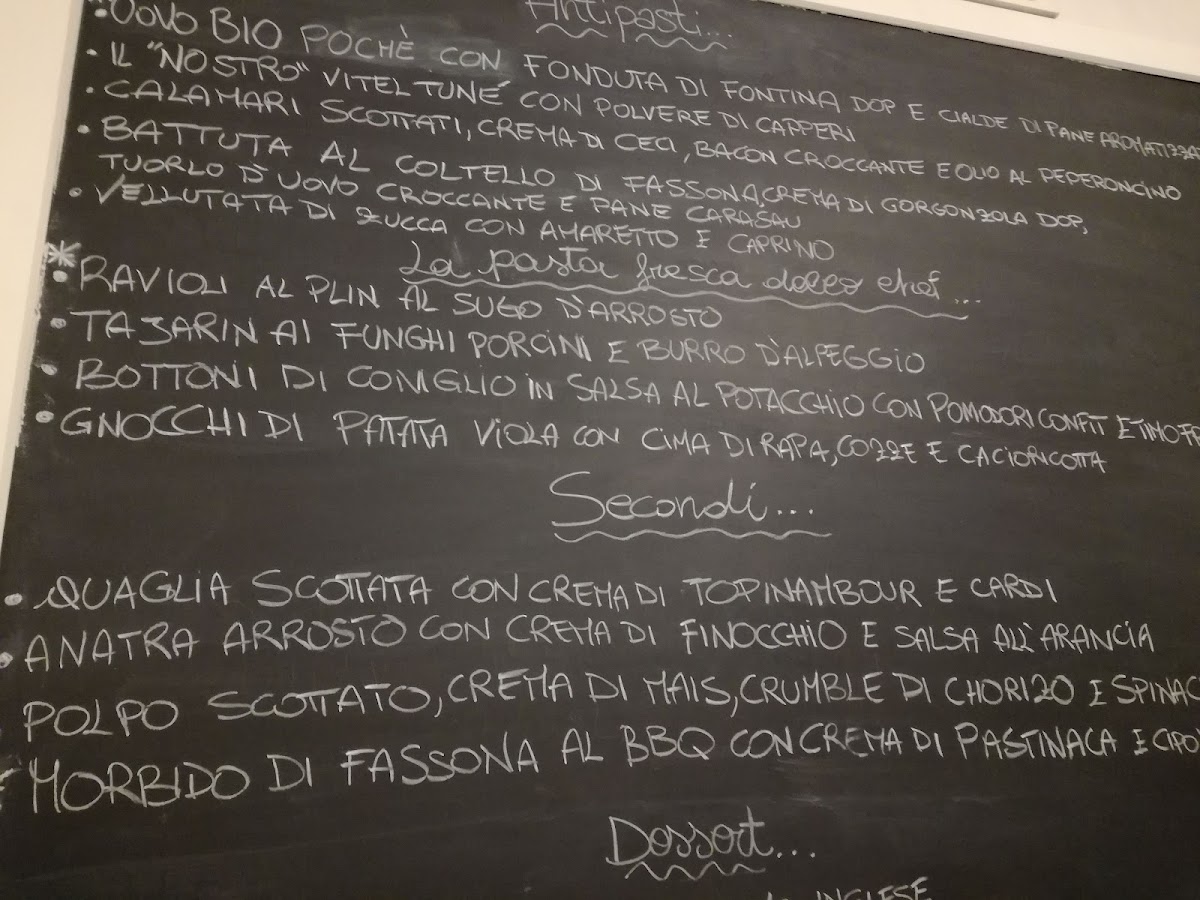 Antipasti...
• UOVO BIO POCHÈ CON FONDUTA DI FONTINA DOP E CIALDE DI PANE
• IL "NOSTRO" VITEL TUNÉ CON POLVERE DI CAPPERI
• CALAMARI SCOTTATI, CREMA DI CECI, BACON CROCCANTE E OLIO AL PEPERONCINO
• BATTUTA AL COLTELLO DI FASSONA, CREMA DI GORGONZOLA DOP,
TUORLO D'UOVO CROCCANTE E PANE CARASAU
• VELLUTATA DI ZUCCA CON AMARETTO E CAPRINO
* La pasta fresca dello chef...
• RAVIOLI AL PLIN AL SUGO D'ARROSTO
• TAJARIN AI FUNGHI PORCINI E BURRO D'ALPEGGIO
• BOTTONI DI CONIGLIO IN SALSA AL POTACCHIO CON POMODORI CONFIT E
• GNOCCHI DI PATATA VIOLA CON CIMA DI RAPA, COZZE E CACIORICOTTA
Secondi...
• QUAGLIA SCOTTATA CON CREMA DI TOPINAMBOUR E CARDI
• ANATRA ARROSTO CON CREMA DI FINOCCHIO E SALSA ALL'ARANCIA
POLPO SCOTTATO, CREMA DI MAIS, CRUMBLE DI CHORIZO E
MORBIDO DI FASSONA AL BBQ CON CREMA DI PASTINACA E
Dessert...
INGLESE